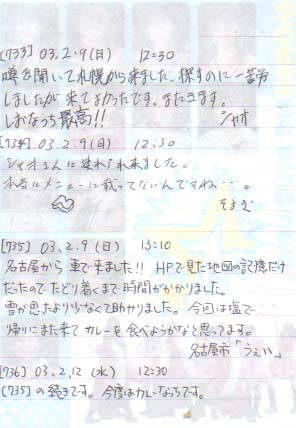 [733] 03.2.9(日) 12:30
噂を聞いて札幌から来ました。探すのに一苦労
しましたが来てよかったです。またきます。
しおなっち最高!!
シャオ
[734] 03.2.9(日) 12:30
シャオさんに連れられ来ました。
本当にメニューに載ってないんですね…。
[735] 03.2.9(日) 13:10
名古屋から車で来ました!! HPで見た地図の記憶だけ
だったのでたどり着くまで時間がかかりました。
雪が思たより少なくて助かりました。今回は塩で…
帰りにまた来てカレーを食べようかなと思ってます。
名古屋市「うぇい」
[736] 03.2.12(水) 12:30
[735]の続きです。今度はカレーなっちです。